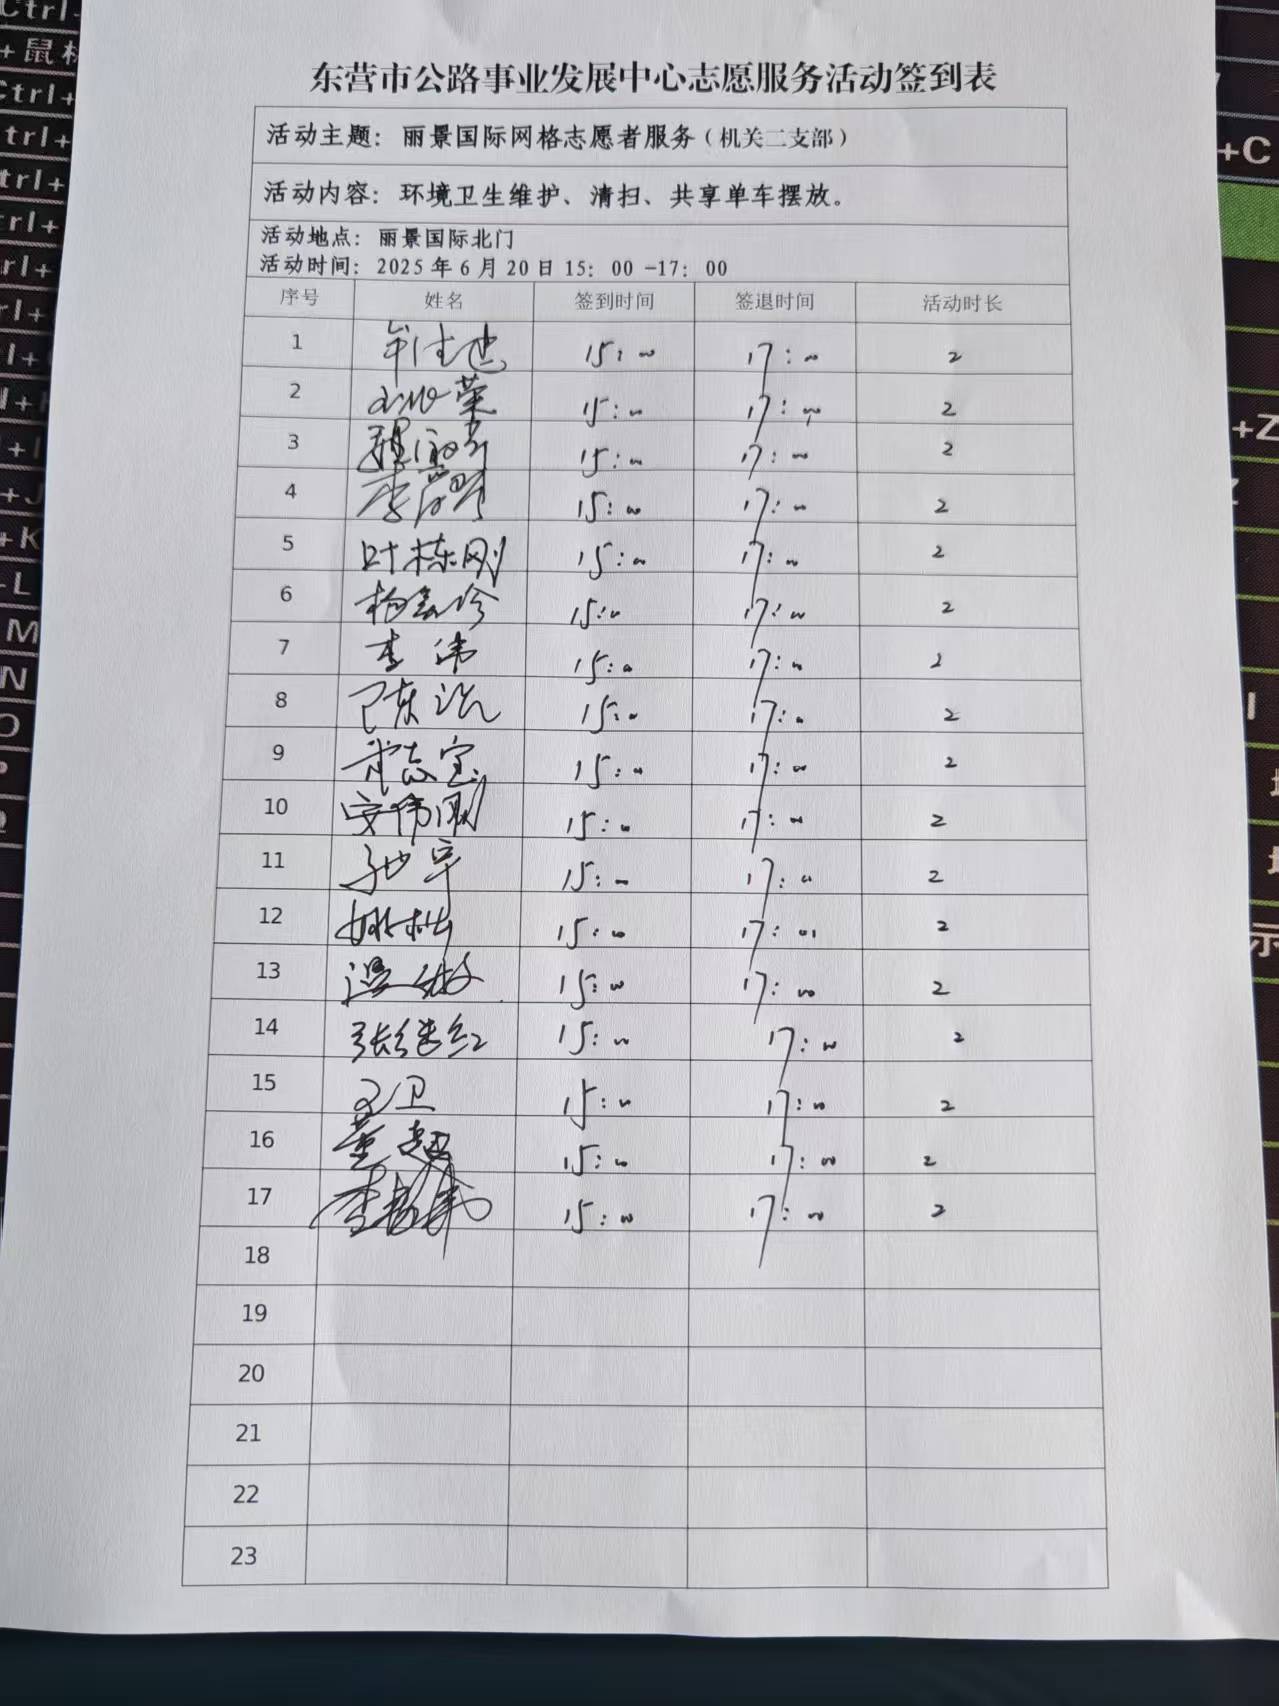 东营市公路事业发展中心志愿服务活动签到表
活动主题：丽景国际网格志愿者服务（机关二支部）
活动内容：环境卫生维护、清扫、共享单车摆放。
活动地点：丽景国际北门
活动时间：2025年6月20日15：00-17：00
序号 姓名 签到时间 签退时间 活动时长
1 15:00 17:00 2
2 15:00 17:00 2
3 15:00 17:00 2
4 15:00 17:00 2
5 叶栋刚 15:00 17:00 2
6 15:00 17:00 2
7 李伟 15:00 17:00 2
8 陈浩 15:00 17:00 2
9 肖志宝 15:00 17:00 2
10 安伟刚 15:00 17:00 2
11 15:00 17:00 2
12 15:00 17:00 2
13 15:00 17:00 2
14 张继红 15:00 17:00 2
15 王卫 15:00 17:00 2
16 董超 15:00 17:00 2
17 15:00 17:00 2
18
19
20
21
22
23